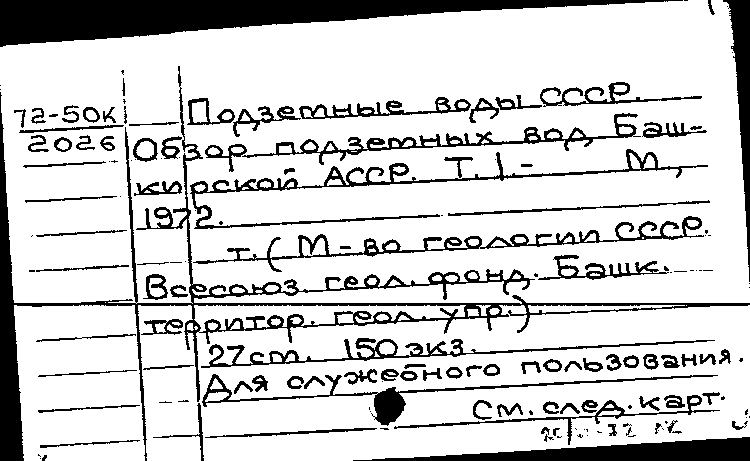 72-50к
2026
Подземные воды СССР.
Обзор подземных вод Баш-
кирской АССР. Т. 1.- М.,
1972.
т. (М-во геологии СССР.
Всесоюз. геол. фонд. Башк.
территор. геол. упр.).
27см. 150 экз.
Для служебного пользования.
См. след. карт.